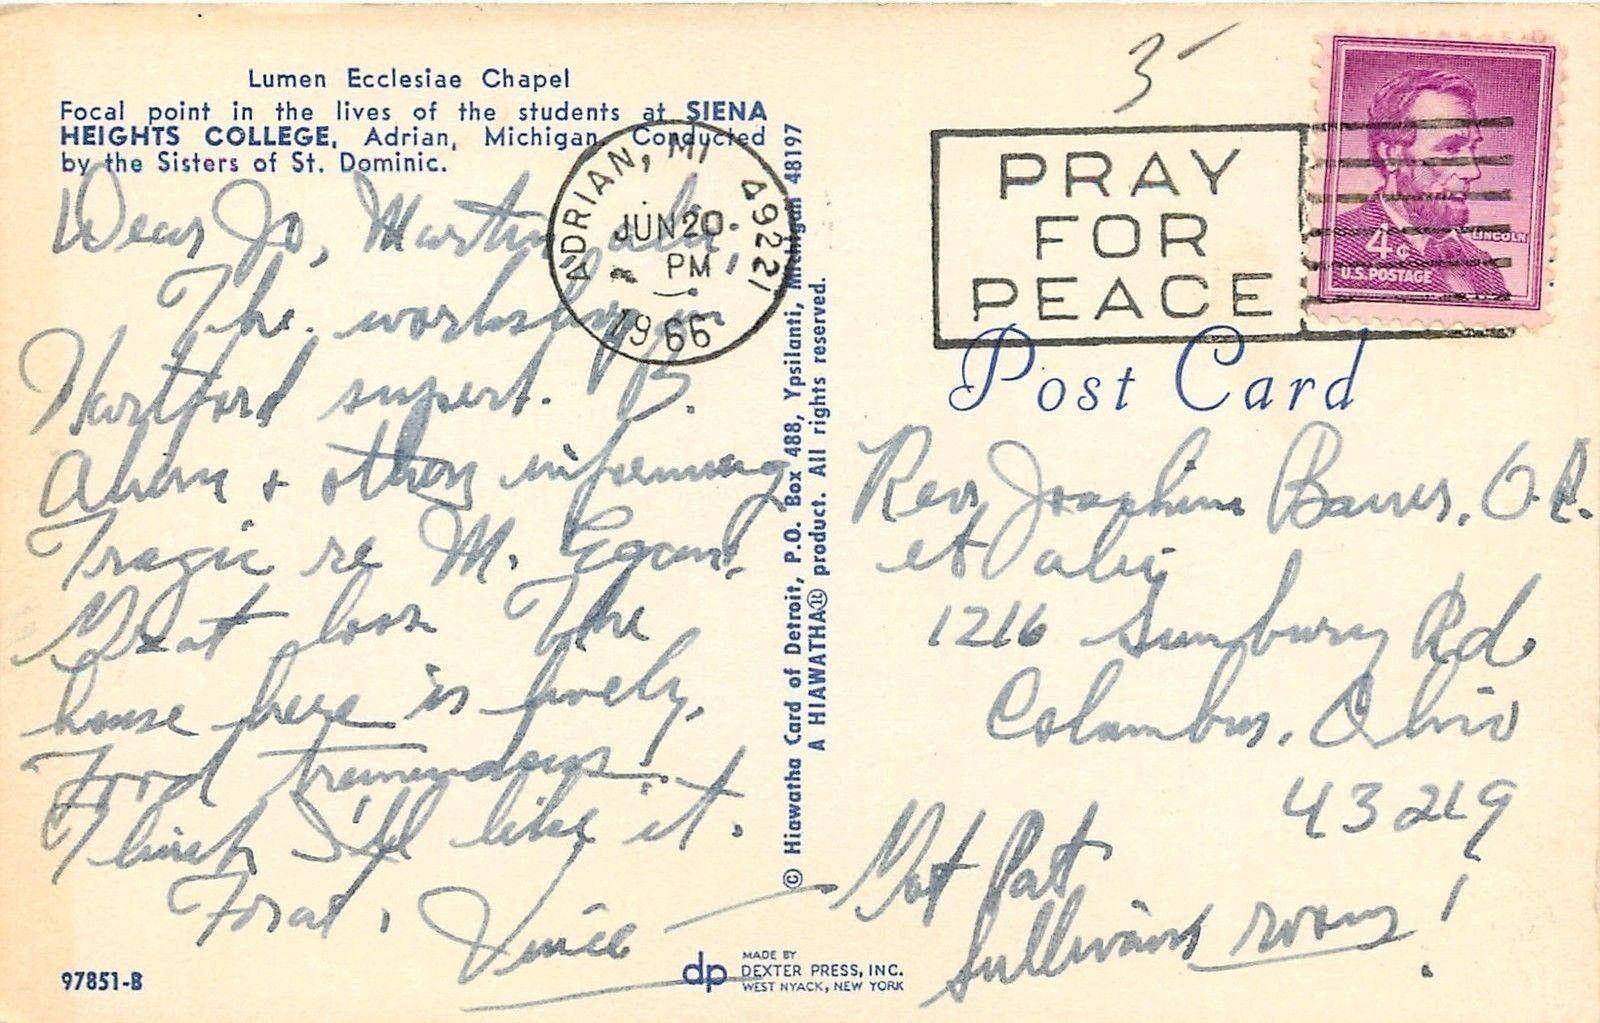 Lumen Ecclesiae Chapel
Focal point in the lives of the students at SIENA
HEIGHTS COLLEGE, Adrian, Michigan. Conducted
by the Sisters of St. Dominic.
Dear Jo, Martin,
The workshop in
Hartford superb. B.
+ others informing
Tragic re M. Egan.
Great loss. The
house here is lovely.
Food tremendous!
Think I'll like it.
Vince
97851-B
ADRIAN, MI 49221
JUN 20
PM
1966
© Hiawatha Card of Detroit, P.O. Box 488, Ypsilanti, Michigan 48197
A HIAWATHA® product. All rights reserved.
dp
MADE BY
DEXTER PRESS, INC.
WEST NYACK, NEW YORK
3-
PRAY
FOR
PEACE
LINCOLN
4¢
U.S. POSTAGE
Post Card
Rev. Josephine
et
1216 Sunbury Rd.
Columbus, Ohio
43219
Got Pat
Sullivans room!